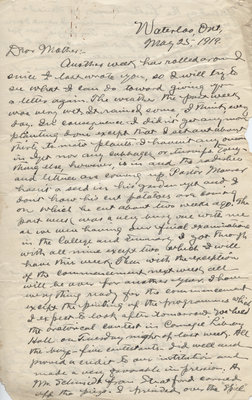 Waterloo, Ont,
May 25, 1919.
Dear Mother:-
Another week has rolled around
since I last wrote you, so I will try to
see what I can do toward giving you
a letter again. The weather the past week
was very wet. It rained some I think every
day. In consequence I didn't get any more
planting done except that I set out about
thirty tomato plants. I haven't any
in yet nor any cabbages or turnips. Every
thing else however is in and the radishes
and lettuce are coming up. Pastor Maurer
hasn't a seed in his garden yet and I
don't know his cut potatoes are
on which he cut about two weeks ago. The
past week was a very busy one with me
as we were having our final examinations
in the College and Seminary. I got through
with all mine except two which I will
have this week. Then with the exception
of the commencement next week all
will be over for another year. I have
everything ready for the commencement
except the printing of the programme which
I expect to look after tomorrow. We held
the oratorical contest in
Hall on Tuesday night of last week. All
the boys - five contestants did well and
proved a credit to our institution and
made a very favorable impression. A
Mr. Schmidt from Stratford
off the prize. I presided over the